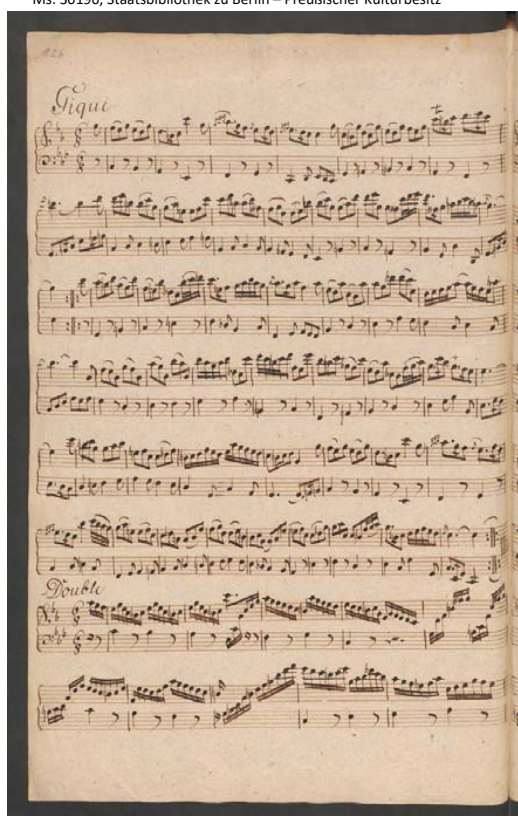 Ms. 30196, Staatsbibliothek zu Berlin – Preußischer Kulturbesitz
126
Gique
Double